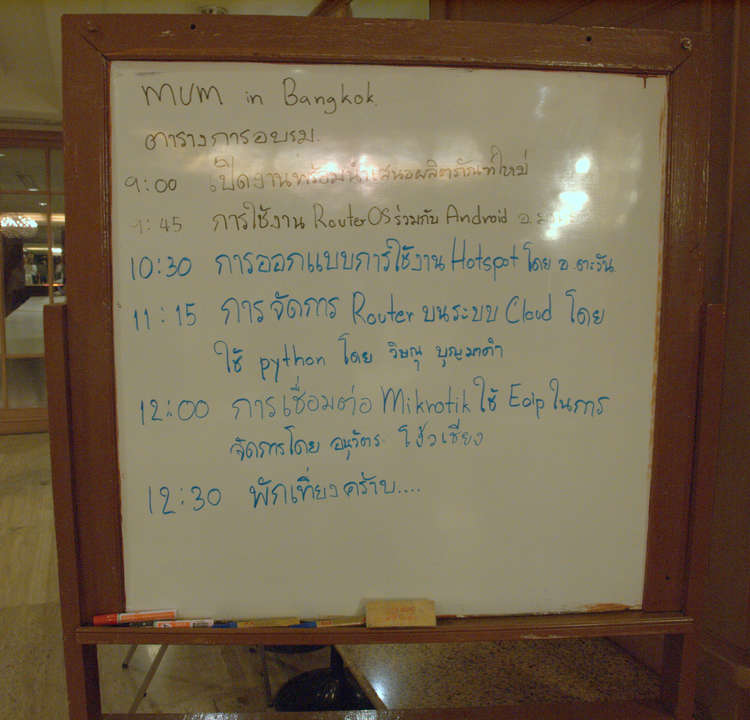 MUM in Bangkok.
ตารางการอบรม.
9:00 เปิดงานพร้อมนำเสนอผลิตภัณฑ์ใหม่
:45 การใช้งาน RouterOS ร่วมกับ Android อ.
10:30 การออกแบบการใช้งาน Hotspot โดย อ.ตะวัน
11:15 การจัดการ Router บนระบบ Cloud โดย
ใช้ python โดย วิษณุ บุญมาคำ
12:00 การเชื่อมต่อ Mikrotik ใช้ Eoip ในการ
จัดการโดย อนุวัตร โง้วเชียง
12:30 พักเที่ยงคร้าบ....